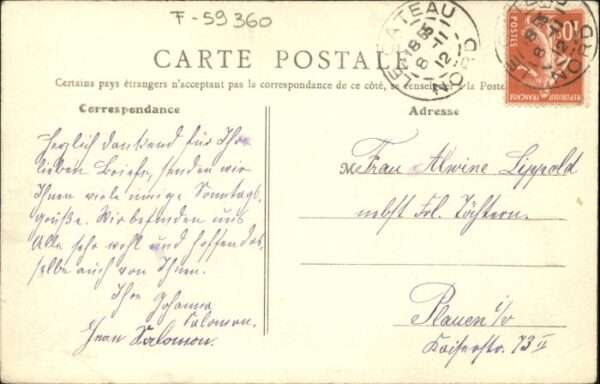 F-59360
CARTE POSTALE
Certains pays étrangers n'acceptant pas la correspondance de ce côté, se renseigner à la Poste
Correspondance
Adresse
Herzlich dankend für Ihre
lieben Briefe, senden wir
Ihnen viele innige Sonntags-
grüße. Wir befinden uns
Alle sehr wohl und hoffen das-
selbe auch von Ihnen.
Ihre Johanna
Salomon.
Jean Salomon.
M Frau Alwine Lippold
nebst Frl. Töchtern.
Plauen i/V
Kaiserstr. 73 II
LE CATEAU
18 35
8 -11
12
NORD
POSTES
10
REPUBLIQUE FRANÇAISE